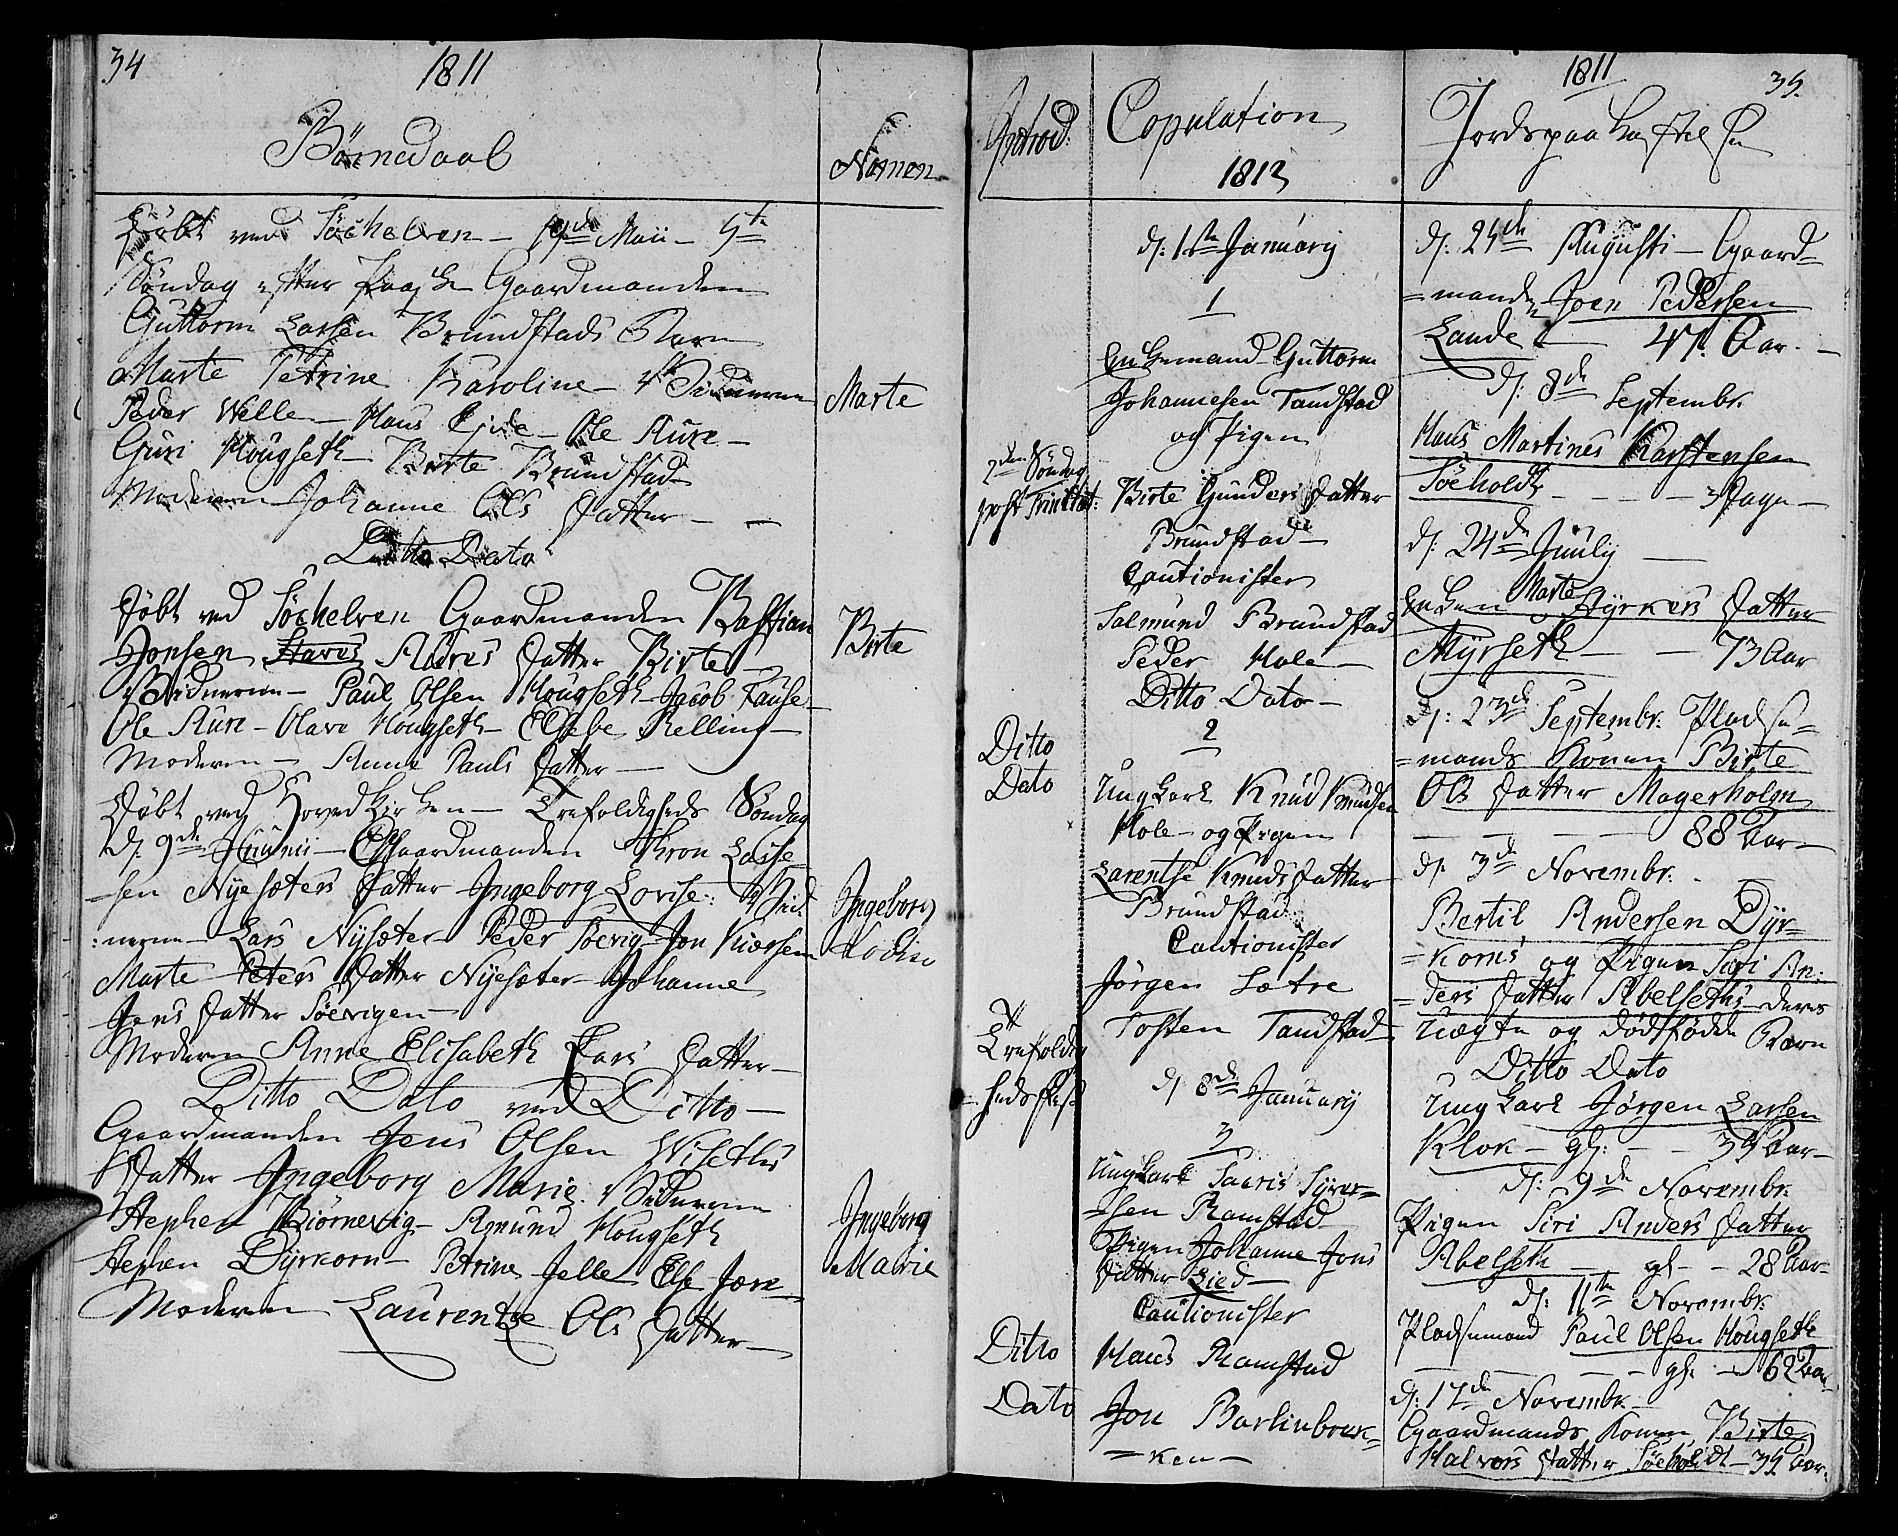 34
1811
Börnedaab
Nafnen
Döbt ved Söehelven – 19de Maii – 5te
Söndag efter Paaske Gaardmanden
Guttorm Larsen Brundstads Barn
Marte Petrine Karoline –
Peder Welle – Hans Eide – Ole Aure –
Guri Hougseth – Birte Brundstad –
Moderen Johanne Ols Datter – –
Marte
Ditto Dato
Döbt ved Söehelven Gaardmanden Bastian
Jonsen Aures Datter Birte –
Vidnerne – Paul Olsen Hougseth – Jacob
Ole Aure – Olava Hougseth – Elsebe Relling –
Moderen – Anne Pauls Datter –
Birte
Döbt ved Hovedkirken – Trefoldigheds Söndag
d: 9de Junii – Gaardmanden
sen Nyesæters Datter Ingeborg Lovise: Vid:
:nerne – Lars Nysæter – Peder Söevig – Jon
Marte Peters Datter Nyesæter – Johanne
Jens Datter Söevigen –
Moderen Anne Elisabeth Lars Datter –
Ingeborg
Lovise
Ditto Dato ved Ditto –
Gaardmanden Jens Olsen Viseths
Datter Ingeborg Marie. Vidnerne
Stephen Björnevig – Amund Hougseth
Stephen Dyrkorn – Petrine Jelle Else
Moderen Laurentze Ols Datter –
Ingeborg
Marie
Introd:
2den Söndag
post Trinitat:
Ditto
Dato
Trefoldig
heds Fest
Ditto
Dato
Copulation
1812
d: 1te Januarij
1
Enkemand Guttorm
Johannesen Tandstad
og Pigen
Birte Gunders Datter
Brundstad –
Cautionister
Salmund Brundstad
Peder Hole –
Ditto Dato –
2
Ungkarl Knud Knudsen
Hole – og Pigen
Larentse Knuds Datter
Brundstad
Cautionister
Jörgen Sætre
Tosten Tandstad –
d: 8de Januarij
3
Ungkarl Saaris Syver=
=sen Ramstad
Pigen Johanne Jons
Datter Lied –
Cautionister
Hans Ramstad
Jon
=ken –
1811
35.
Jordspaakastelse
d: 25de Augusti – Gaard=
=manden Joen Pedersen
Lande – 47. Aar. –
d: 8de Septembr.
Hans Martinus Karstensen
Söeholdt – – – – Dage –
d: 24de Juulij –
Enken Marte Styrkers Datter
Myrseth – – 73 Aar
d: 23de Septembr: Pladse=
=mands Konen Birte
Ols Datter Magerholm
– – – – 88 Aar –
d: 3de Novembr. – –
Bertil Andersen Dyr=
=korns og Pigen Siri An:
=ders Datter Abelseths deres
Uægte og dödfödde Barn
Ditto Dato
Ungkarl Jörgen Larsen
Klok – gl: – – 34 Aar –
d: 9de Novembr.
Pigen Siri Anders Datter
Abelseth – gl – – 28 Aar –
d: 11te Novembr:
Pladsemand Paul Olsen Hougseth
– – – – gl: – 62 Aar
d: 17de Novembr –
Gaardmands Konen Birte
Halvors Datter Söeholdt – 39 Aar.